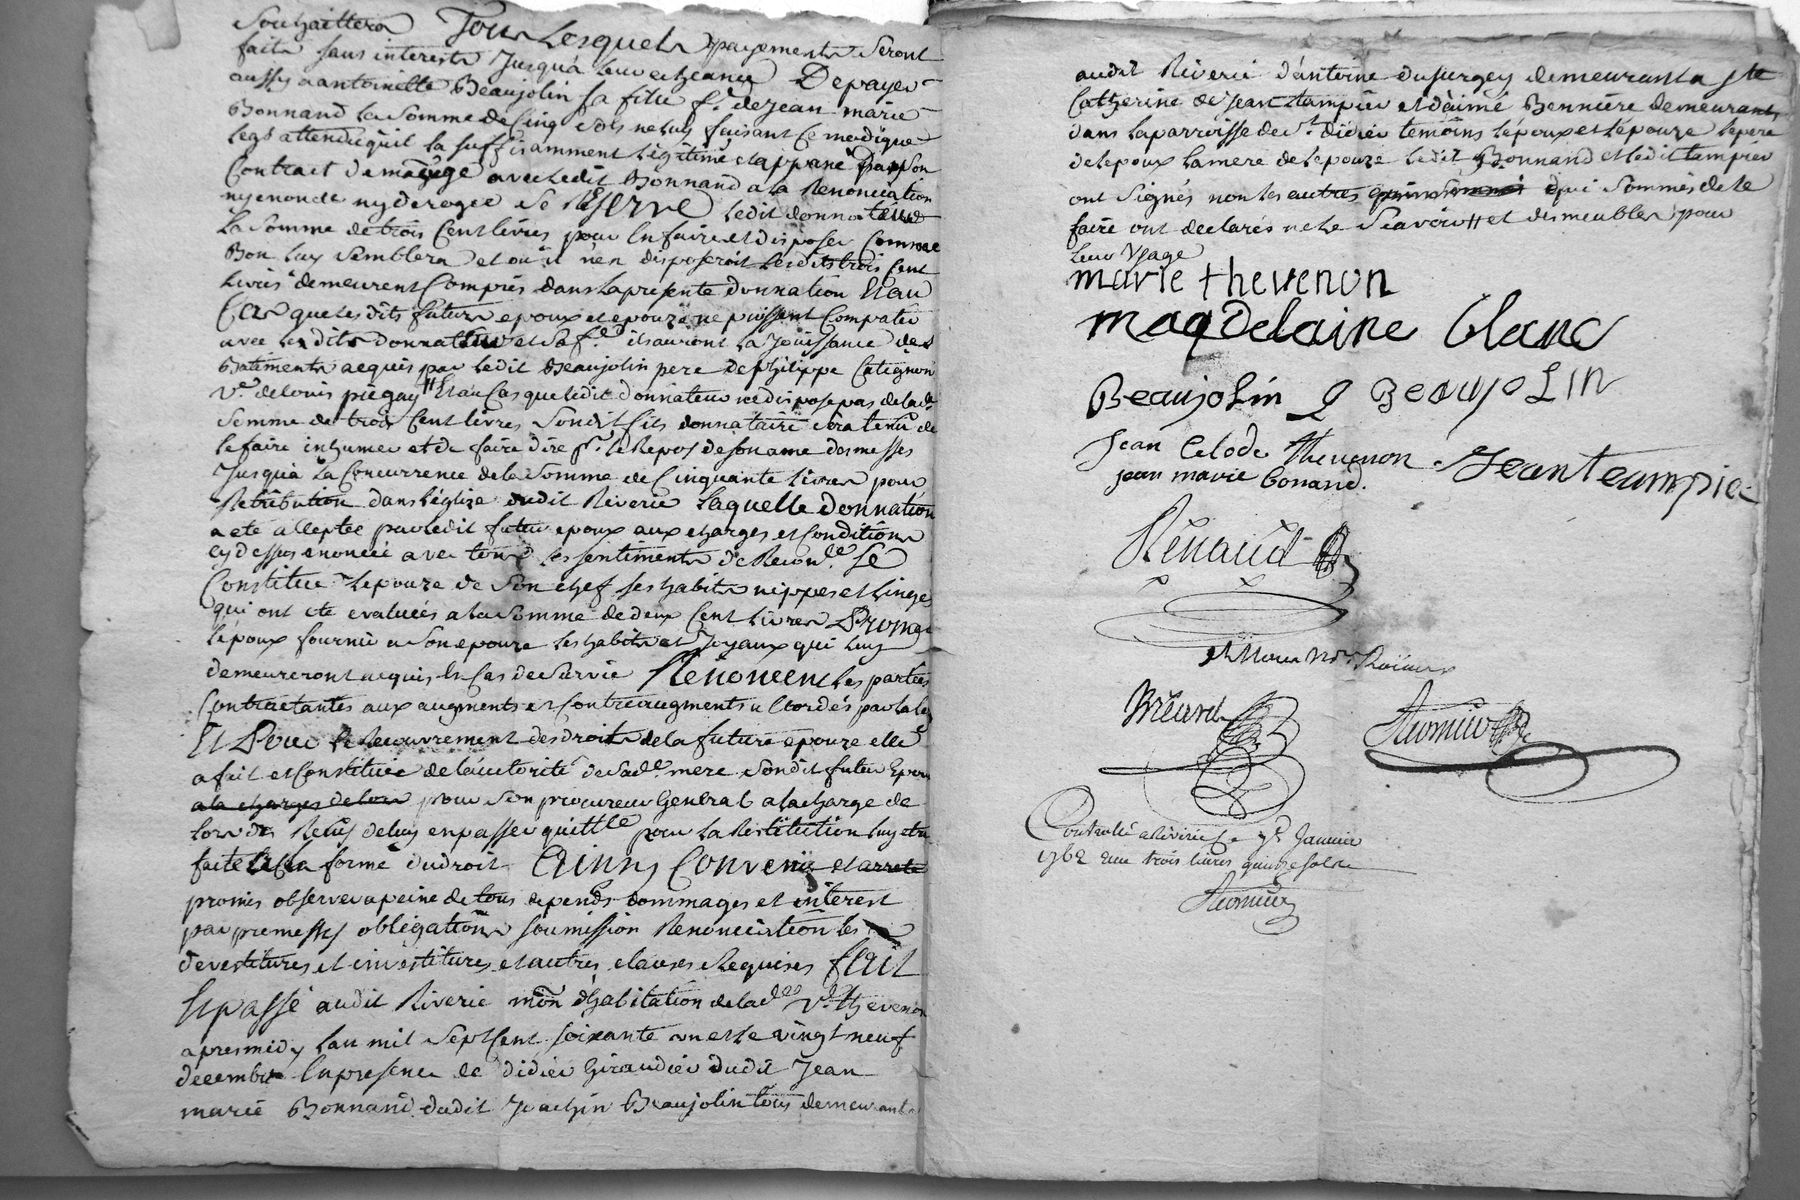 souhaittera Tous Lesquels payements seront
faits sans interests Jusqu'a leur echeance De payer
aussy a antoinette Beaujolin sa fille f.e de jean marie
Bonnand la somme de Cinq sols ne luy faisant Ce modique
legs attendu qu'il la suffisamment légitimé et appané par son
Contract de mariage avec ledit Bonnand a la Renonciation
ny enoncée ny derogée se Réserve ledit donnateur
la somme de trois Cent livres pour En faire et disposer Comme
Bon luy semblera et ou il n'en disposeroit lesdits trois Cent
livres demeurent Compris dans la présente donnation Et au
Cas que lesdits futurs epoux et epouze ne puissent Compatir
avec lesdits donnateur et sa f.e ils auront la Jouissance des
Batiments acquis par ledit Beaujolin pere de philippe Catignon
v.e de louis piegay Et au Cas que ledit donnateur ne dispose pas de lad.
somme de trois Cent livres son dit fils donnataire sera tenu de
le faire inhumer et de faire dire p.r le Repos de son ame des messes
Jusqu'a la Concurrence de la somme de Cinquante livres pour
Retribution dans l'églize dudit Riverie Laquelle donnation
a eté acceptée par ledit futur epoux aux charges et Conditions
cy dessus enoncée avec tous les sentiments de Recon.ce Se
Constitue l'epouze de son chef ses habits nippes et linges
qui ont eté evaluées a la somme de deux Cent livres Promet
l'époux fournir a son epouze les habits et Joyaux qui luy
demeureront acquis En Cas de survie Renoncent les parties
Contractantes aux augments et Contreaugments accordés par la loy
Et Pour le Recouvrement des droits de la future epouze elle
a fait et Constitué de l'autorité de sad.e mere son dit futur Epoux
a la charges de lors pour son procureur General a la charge de
lors des Recus de luy en passer quittce pour la Restitution luy etre
faite En la forme du droit Ainsy Convenu et arreté
promis observer a peine de tous depends dommages et interest
par promesses obligations soumission Renonciation les
devestitures et investitures et autres clauses Requises fait
Et passé audit Riverie mon d'habitation de lad. v.e thevenon
apres midy l'an mil sept Cent soixante un et le vingt neuf
decembre En presence de didier Giraudier dudit Jean
marie Bonnand dudit Joachin Beaujolin tous demeurants
audit Riverie d'antoine dusurgey demeurant a ste
Catherine de Jean tampier et d'aimé Bennière demeurants
dans la parroisse de st didier temoins l'époux et l'épouze le pere
de l'epoux la mere de l'epouze ledit Bonnand et ledit tampier
ont signés non les autres qui sommés de le
faire ont declarés ne le scavoir et des meubles pour
leur Usage
marie thevenon
magdelaine blanc
Beaujolin BeaujoLIN
Jean Clode thevenon Jean teampier
jean marie bonand.
Rénaud
Controllé a Riverie le 7e Janvier
1762 Reçu trois livres quinze sols